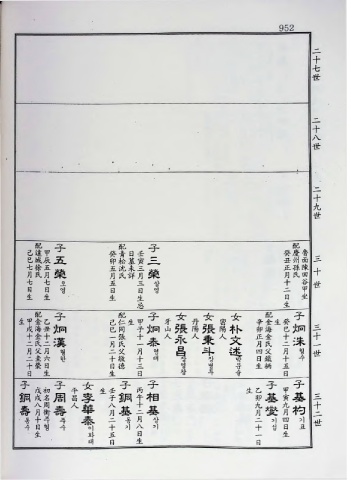 952
二十七世
二十八世
二十九世
三十世
魯面陳田谷甲坐
配慶州孫氏
癸丑正月十二日生
子三榮 삼영
壬寅三月三日生忌
日墓未詳
配青松沈氏
癸卯五月五日生
子五榮 오영
甲辰五月七日生
配達城徐氏
己巳七月七日生
三十一世
子炯洙 형수
癸巳十二月十五日
生
配金海金氏父
辛卯正月四日生
女朴文述 박문술
密陽人
女張秉斗 장병두
丹陽人
女張永昌 장영창
牙山人
子炯泰 형태
甲子十一月十三日
生
配仁同張氏父銀德
己巳一月二十日生
子炯漢 형한
乙丑十二月六日生
配金海金氏父
甲戌十一月二十日
生
三十二世
子基杓 기표
甲寅九月四日生
子基燮 기섭
乙卯九月二十一日
生
子相基 상기
丙午十二月八日生
子鋼基
壬子八月二十五日
生
女李華泰 이화태
平昌人
子周壽 주수
初名周衡 주형
戊戌八月十日生
子鋼壽